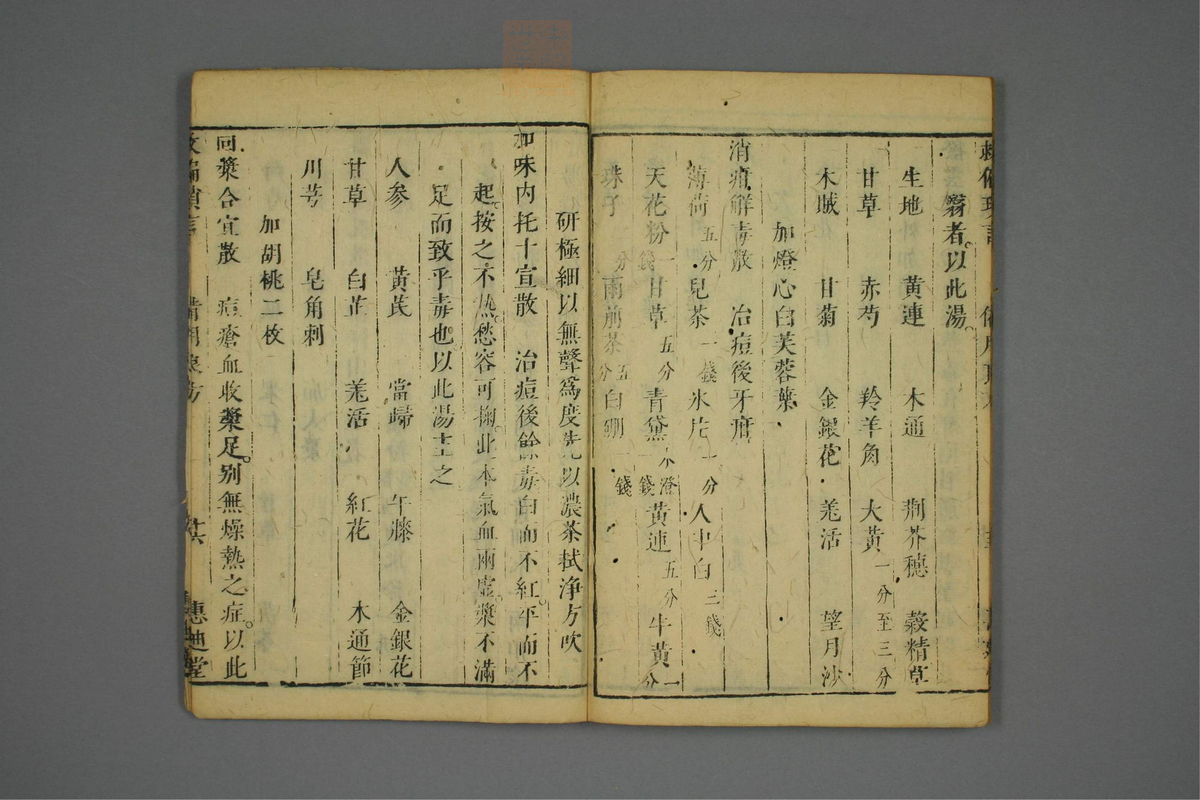 翳者。以此湯。
生地 黃連 木通 荆芥穗 穀精草
甘草 赤芍 羚羊角 大黃一分至三分
木賊 甘菊 金銀花 羗活 望月沙
加燈心白芙蓉葉
消疳解毒散 治痘後牙疳
薄荷五分 兒茶一錢 氷片一分 人中白三錢
天花粉一錢 甘草五分 青黛水澄一錢 黃連五分 牛黃一分
珠子 分 雨前茶五分 白硼一錢
研極細以無聲爲度先以濃茶拭净方吹
加味内托十宣散 治痘後餘毒白而不紅。平而不
起。按之不热。愁容可掬。此本氣血兩虛。漿不滿
足而致乎毒也以此湯主之
人參 黃芪 當歸 牛膝 金銀花
甘草 白芷 羗活 紅花 木通節
川芎 皂角刺
加胡桃二枚
回漿合宣散 痘瘡血收漿足。别無燥熱之症。以此
救偏瑣言 備用良方 十六 惠迪堂